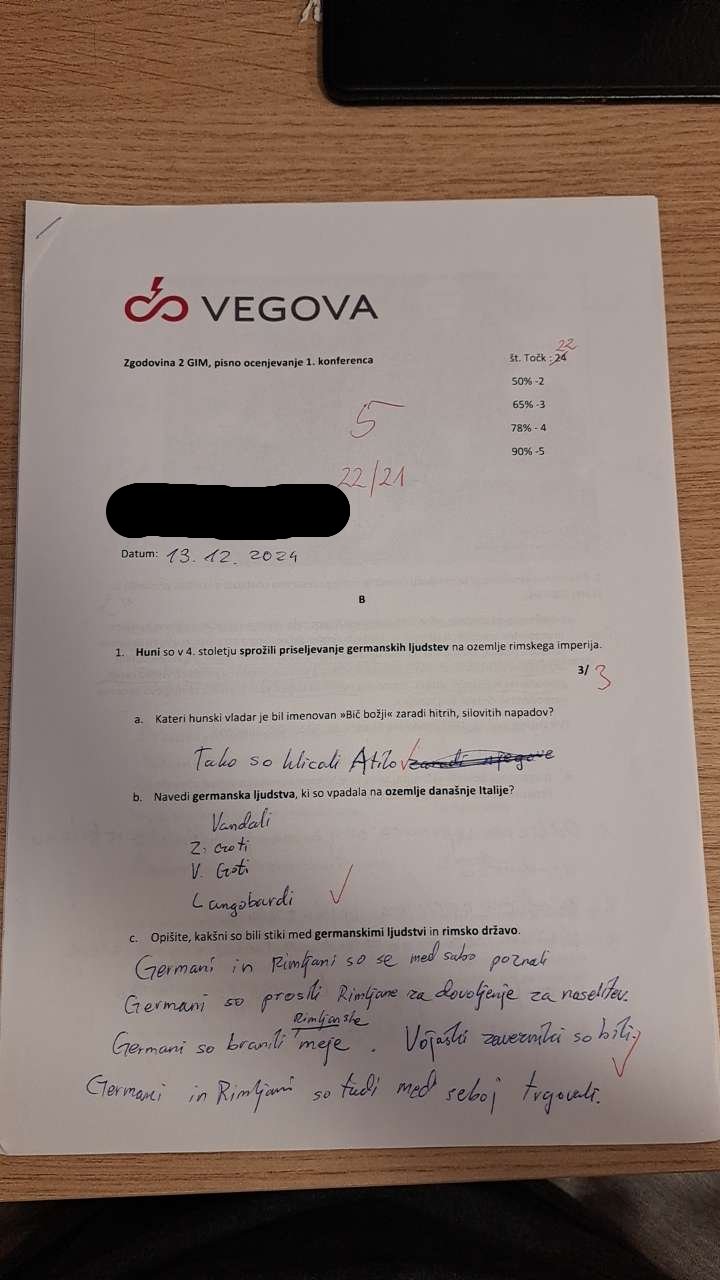 VEGOVA
Zgodovina 2 GIM, pisno ocenjevanje 1. konferenca
št. Točk : 24 22
50% -2
65% -3
78% - 4
90% -5
5
22/21
Datum: 13. 12. 2024
B
1. Huni so v 4. stoletju sprožili priseljevanje germanskih ljudstev na ozemlje rimskega imperija.
3/ 3
a. Kateri hunski vladar je bil imenovan »Bič božji« zaradi hitrih, silovitih napadov?
Tako so klicali Atilo zaradi njegove
b. Navedi germanska ljudstva, ki so vpadala na ozemlje današnje Italije?
Vandali
Z. Goti
V. Goti
Langobardi
c. Opišite, kakšni so bili stiki med germanskimi ljudstvi in rimsko državo.
Germani in Rimljani so se med sabo poznali
Germani so prosili Rimljane za dovoljenje za naselitev.
Germani so branili Rimljanske meje. Vojaški zavezniki so bili.
Germani in Rimljani so tudi med seboj trgovali.